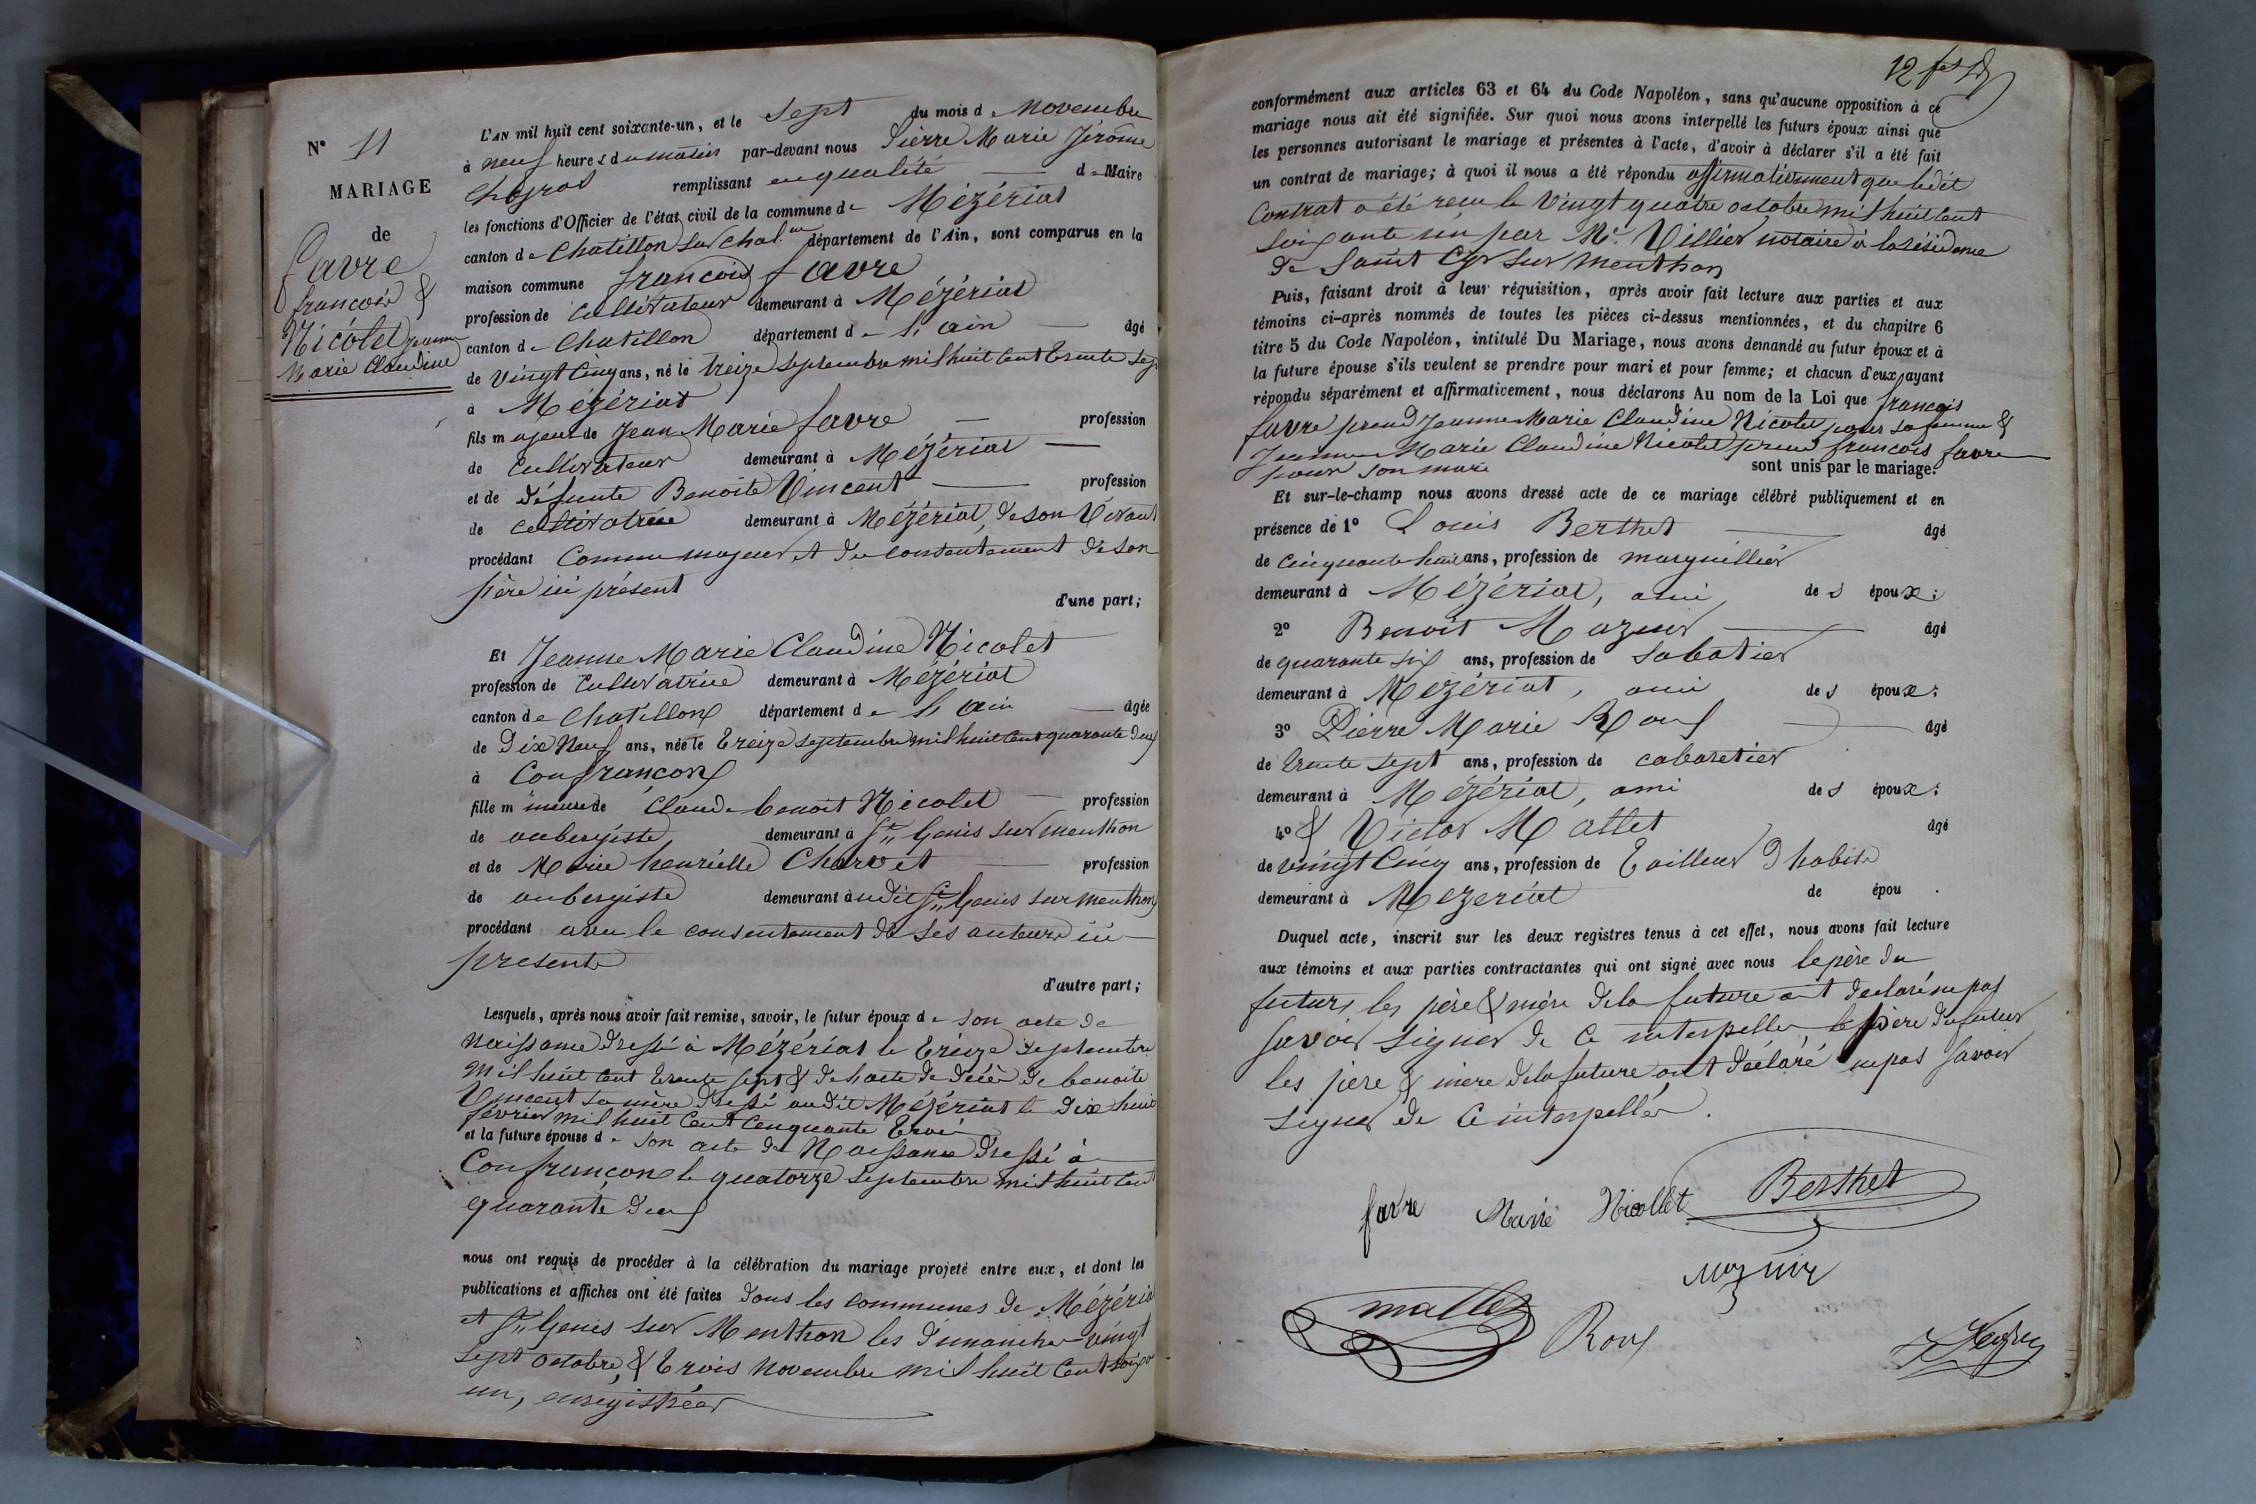 N° 11
MARIAGE
de
favre
françois &
Nicolet jeanne
Marie Claudine
L'AN mil huit cent soixante-un, et le sept du mois de Novembre
à neuf heures du matin par-devant nous Pierre Marie Jérôme
remplissant en qualité de Maire
les fonctions d'Officier de l'état civil de la commune de Mézériat
canton de Chatillon sur Chal.ne département de l'Ain, sont comparus en la
maison commune françois favre
profession de Cultivateur demeurant à Mézériat
canton de Chatillon département de l'ain âgé
de vingt Cinq ans, né le treize septembre mil huit Cent trente sept
à Mézériat
fils majeur de Jean Marie favre profession
de Cultivateur demeurant à Mézériat
et de défunte Benoite Vincent profession
de Cultivatrice demeurant à Mézériat, de son Vivant
procédant Comme majeur et du consentement de son
père ici présent
d'une part;
Et Jeanne Marie Claudine Nicolet
profession de Cultivatrice demeurant à Mézériat
canton de Chatillon département de l'ain âgée
de Dix Neuf ans, née le treize septembre mil huit Cent quarante deux
à Confrançon
fille mineure de Claude benoit Nicolet profession
de aubergiste demeurant à St Genis sur menthon
et de Marie henriette Charvet profession
de aubergiste demeurant à udit St Genis sur menthon
procédant avec le consentement de ses auteurs ici
présents
d'autre part;
Lesquels, après nous avoir fait remise, savoir, le futur époux de son acte de
Naissance dressé à Mézériat le treize septembre
mil huit Cent trente sept & de l'acte de décès de benoite
Vincent sa mère dressé audit Mézériat le dix huit
février mil huit Cent Cinquante trois
et la future épouse de son acte de Naissance dressé à
Confrançon le quatorze septembre mil huit Cent
quarante deux
nous ont requis de procéder à la célébration du mariage projeté entre eux, et dont les
publications et affiches ont été faites dans les communes de Mézériat
et St Genis sur Menthon les dimanches vingt
sept octobre, & trois Novembre mil huit Cent soixante
un, enregistrées
12
conformément aux articles 63 et 64 du Code Napoléon, sans qu'aucune opposition à ce
mariage nous ait été signifiée. Sur quoi nous avons interpellé les futurs époux ainsi que
les personnes autorisant le mariage et présentes à l'acte, d'avoir à déclarer s'il a été fait
un contrat de mariage; à quoi il nous a été répondu affirmativement que ledit
Contrat a été reçu le Vingt quatre octobre mil huit Cent
soixante un par Me Villier notaire à la résidence
de Saint Cyr sur menthon
Puis, faisant droit à leur réquisition, après avoir fait lecture aux parties et aux
témoins ci-après nommés de toutes les pièces ci-dessus mentionnées, et du chapitre 6
titre 5 du Code Napoléon, intitulé Du Mariage, nous avons demandé au futur époux et à
la future épouse s'ils veulent se prendre pour mari et pour femme; et chacun d'eux ayant
répondu séparément et affirmativement, nous déclarons Au nom de la Loi que françois
favre prend Jeanne Marie Claudine Nicolet pour sa femme &
Jeanne Marie Claudine Nicolet prend françois favre
pour son mari sont unis par le mariage.
Et sur-le-champ nous avons dressé acte de ce mariage célébré publiquement et en
présence de 1° Louis Berthet âgé
de Cinquante huit ans, profession de marguillier
demeurant à Mézériat, ami des époux;
2° Benoit Mazuir âgé
de quarante six ans, profession de sabotier
demeurant à Mézériat, ami des époux;
3° Pierre Marie Roux âgé
de trente sept ans, profession de cabaretier
demeurant à Mézériat, ami des époux;
4° & Victor Mallet âgé
de vingt Cinq ans, profession de tailleur d'habits
demeurant à Mézériat de épou .
Duquel acte, inscrit sur les deux registres tenus à cet effet, nous avons fait lecture
aux témoins et aux parties contractantes qui ont signé avec nous le père du
futur, les père & mère de la future ont déclaré ne pas
savoir signer de ce interpellés le père du futur
les père & mère de la future ont déclaré ne pas savoir
signer de ce interpellés.
favre Marie Nicollet Berthet
Mazuir
mallet Roux